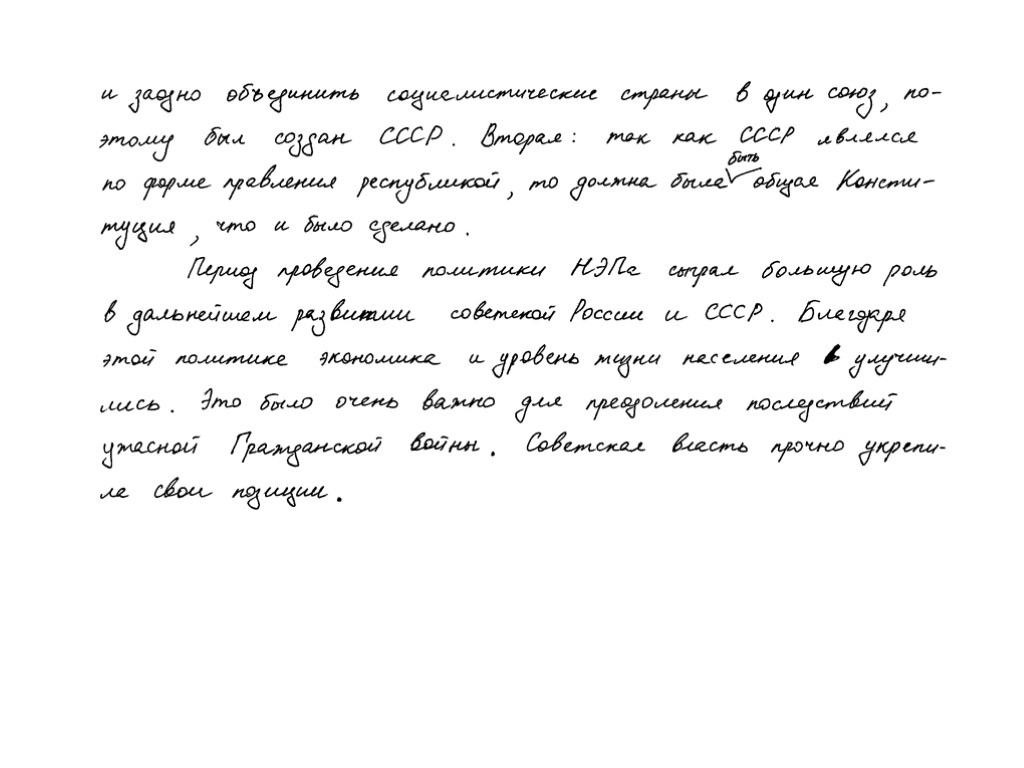 и заодно объединить социалистические страны в один союз, по-
этому был создан СССР. Вторая: так как СССР являлся
по форме правления республикой, то должна была быть общая Консти-
туция, что и было сделано.
Период проведения политики НЭПа сыграл большую роль
в дальнейшем развитии советской России и СССР. Благодаря
этой политике экономика и уровень жизни населения улучши-
лись. Это было очень важно для преодоления последствий
ужасной Гражданской войны. Советская власть прочно укрепи-
ла свои позиции.